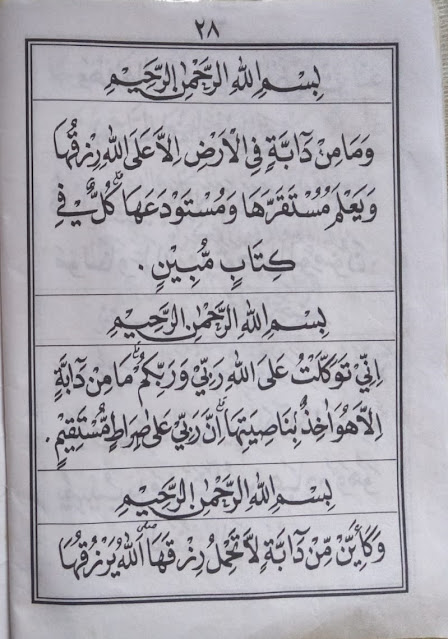 ٢٨
بِسْمِ اللهِ الرَّحْمٰنِ الرَّحِيْمِ
وَمَا مِنْ دَآبَّةٍ فِي الْاَرْضِ اِلَّا عَلَى اللهِ رِزْقُهَا
وَيَعْلَمُ مُسْتَقَرَّهَا وَمُسْتَوْدَعَهَا ۗ كُلٌّ فِيْ
كِتَابٍ مُّبِيْنٍ .
بِسْمِ اللهِ الرَّحْمٰنِ الرَّحِيْمِ
اِنِّيْ تَوَكَّلْتُ عَلَى اللهِ رَبِّيْ وَرَبِّكُمْ ۗ مَا مِنْ دَآبَّةٍ
اِلَّا هُوَ اٰخِذٌ بِنَاصِيَتِهَا ۗ اِنَّ رَبِّيْ عَلٰى صِرَاطٍ مُّسْتَقِيْمٍ .
بِسْمِ اللهِ الرَّحْمٰنِ الرَّحِيْمِ
وَكَأَيِّنْ مِّنْ دَآبَّةٍ لَّا تَحْمِلُ رِزْقَهَا ۖ اَللهُ يَرْزُقُهَا